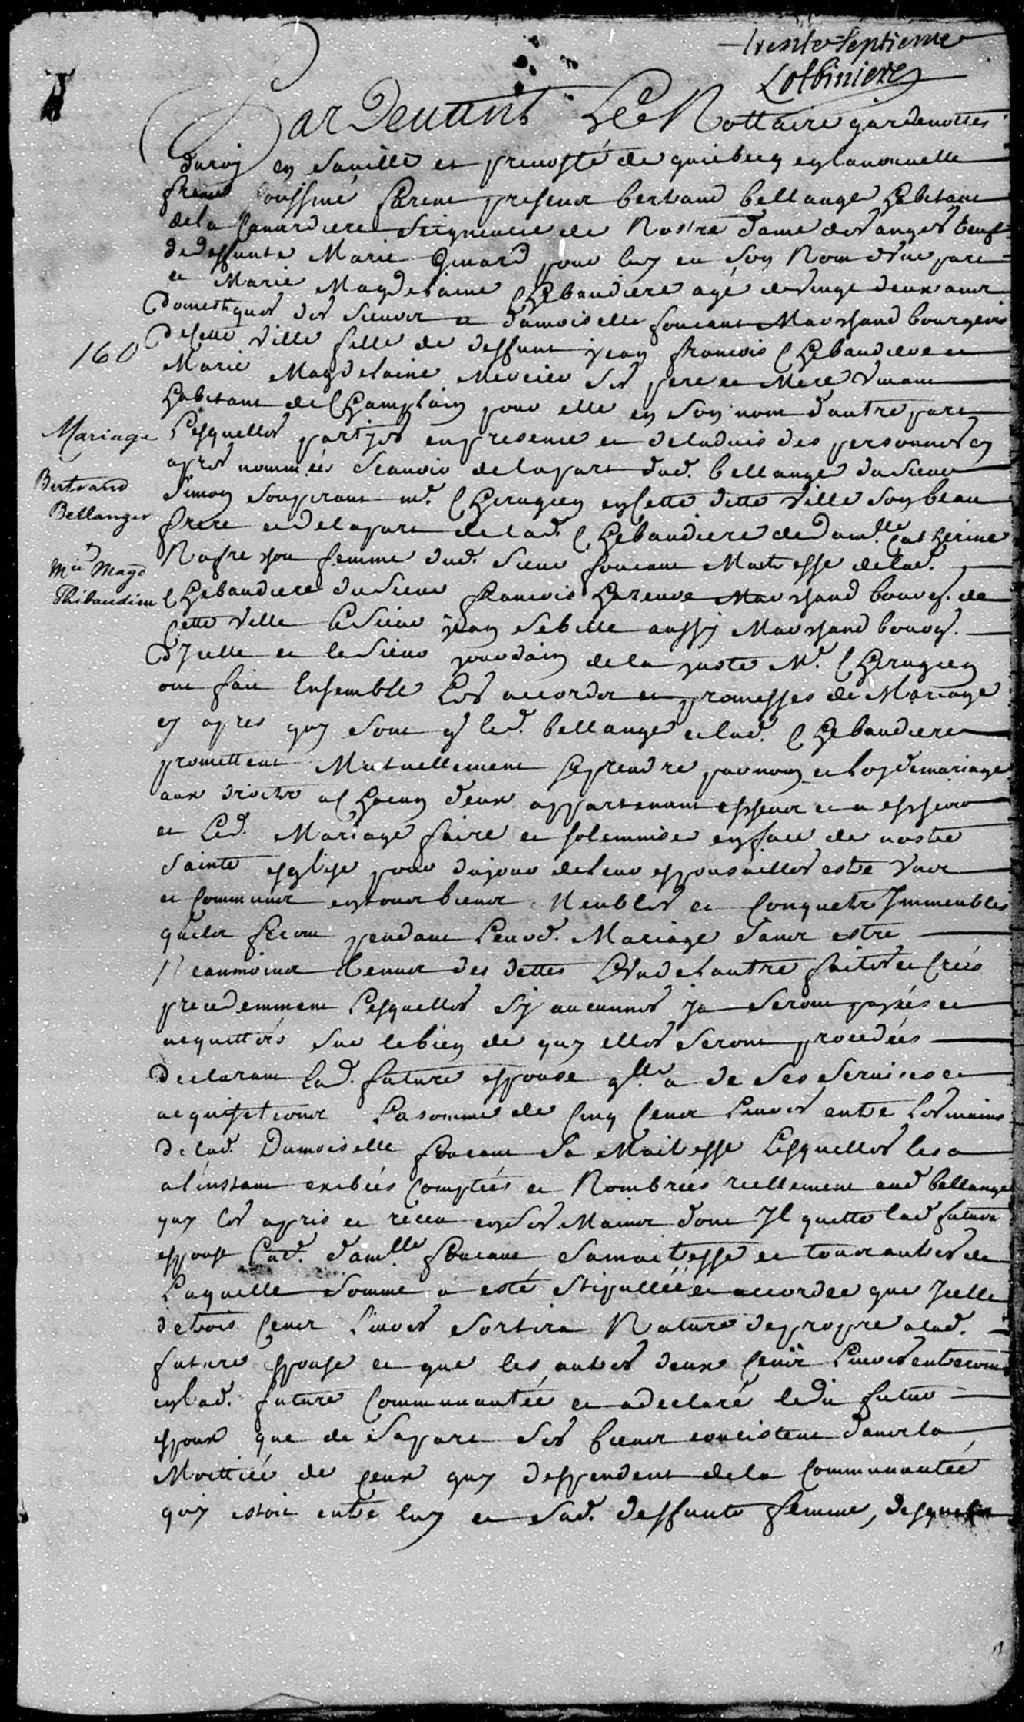 trente Septieme
Lotbiniere
Pardevant Le Nottaire gardenottes
du roy en sa ville et prevosté de quebecq en la nouvelle
france soussiné furent presens bertrand bellange habitant
de la Canardiere Seigneurie de Nostre dame des anges veuf
de deffunte Marie Girard pour luy en son Nom d'une part
et Marie Magdelaine Thibaudiere agé de vingt deux ans
Domestiques des Sieur et damoiselle foucaut Marchand bourgeois
160
de cette ville fille de deffunt jean francois Thibaudiere et
Marie Magdelaine Mercier ses pere et Mere vivant
habitant de Champlain pour elle en son nom d'autre part
Mariage
Lesquelles partyes en presence et de l'advis des personnes cy
apres nommées Scavoir de la part dud. bellange du Sieur
Bertrand
Bellanger
Simon Soupirant md. Chirugien en cette ditte ville son beau
frere et de la part de lad. Thibaudiere de dam.lle Catherine
Nafrechou femme dud. Sieur foucaut Maitresse de lad.
M.ie Magd
Thibaudiere
Thibaudiere du Sieur francois hazeur Marchand bourg. de
cette ville le Sieur jean Sebille aussy Marchand bourg.
D'jcelle et le Sieur jourdain de la juste M.e Chirugien
ont fait Ensemble Les accordes et promesses de Mariage
cy apres quy sont q. led. bellange et lad. Thibaudiere
promettent Mutuellement se prendre par nom et loy de mariage
aux droits a Chacun deux appartenant
et Led. Mariage faire et solemniser en face de nostre
Sainte eglise pour du jour de leur espousailles estre uns
et communs en tous biens Meubles et Conquets Jmmeubles
quils feront pendant Leurd. Mariage sans estre
Neanmoins tenus des dettes L'un de l'autre faites et Créés
precedemment Lesquelles sy aucunnes ja Seront payées et
acquittés sur le bien de quy elles seront procedées
declarant Lad. future espouse q.lle a de Ses Services et
acquisitions La somme de Cinq Cens Livres entre Les mains
de lad. Damoiselle foucaut Sa Maitresse Lesquelles les a
a l'instant exibées Comptés et Nombrées reellement aud bellange
quy les a pris et receu en ses Mains dont Jl quitte lad future
espouse Lad. dam.lle foucaut Sa maitresse et tous autres de
Laquelle Somme a esté Stipullée et accordée que Jcelle
de trois Cens Livres Sortira Nature de propre a lad.
future espouse et que les autres deux Cens Livres entreront
en lad. future Communautée et a declaré ledit futur
espoux que de Sa part Ses biens consistent dans la
Moittiée de ceux quy deppendent de la Communautée
quy estoit entre luy et Sad. deffunte femme,